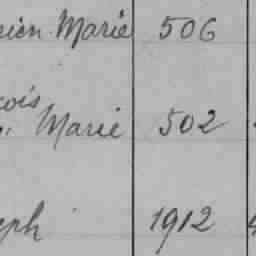 rien Marie 506
çois
Marie 502
eph 1912